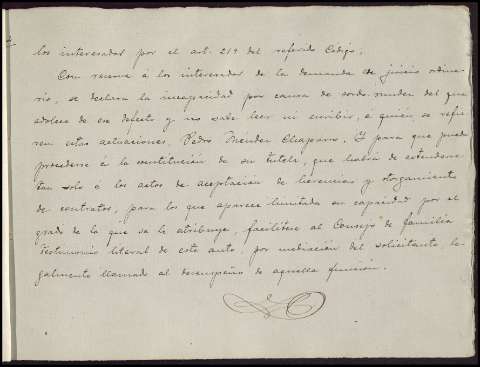 los interesados por el art. 219 del referido Código.
Con reserva á los interesados de la demanda de juicio ordina-
rio, se declara la incapacidad por causa de sordo-mudez del que
adolece de ese defecto y no sabe leer ni escribir, á quien se refie-
ren estas actuaciones, Pedro Méndez Chaparro. Y para que pueda
procederse á la constitución de su tutela, que habrá de extenderse
tan solo á los actos de aceptación de herencias y otorgamiento
de contratos, para los que aparece limitada su capacidad por el
grado de la que se le atribuye, facilítese al Consejo de familia
testimonio literal de este auto, por mediación del solicitante, le-
galmente llamado al desempeño de aquella función.